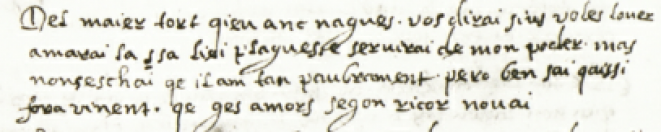 Del maier tort qieu anc nagues. vos dirai sius voles lauer
amarai la ssa lieis plagues seruirai de mon poder. mas
nonseschai qe ilam tan paubrament. pero ben sai qaissi
fora vinent. qe ges amors segon ricor nouai